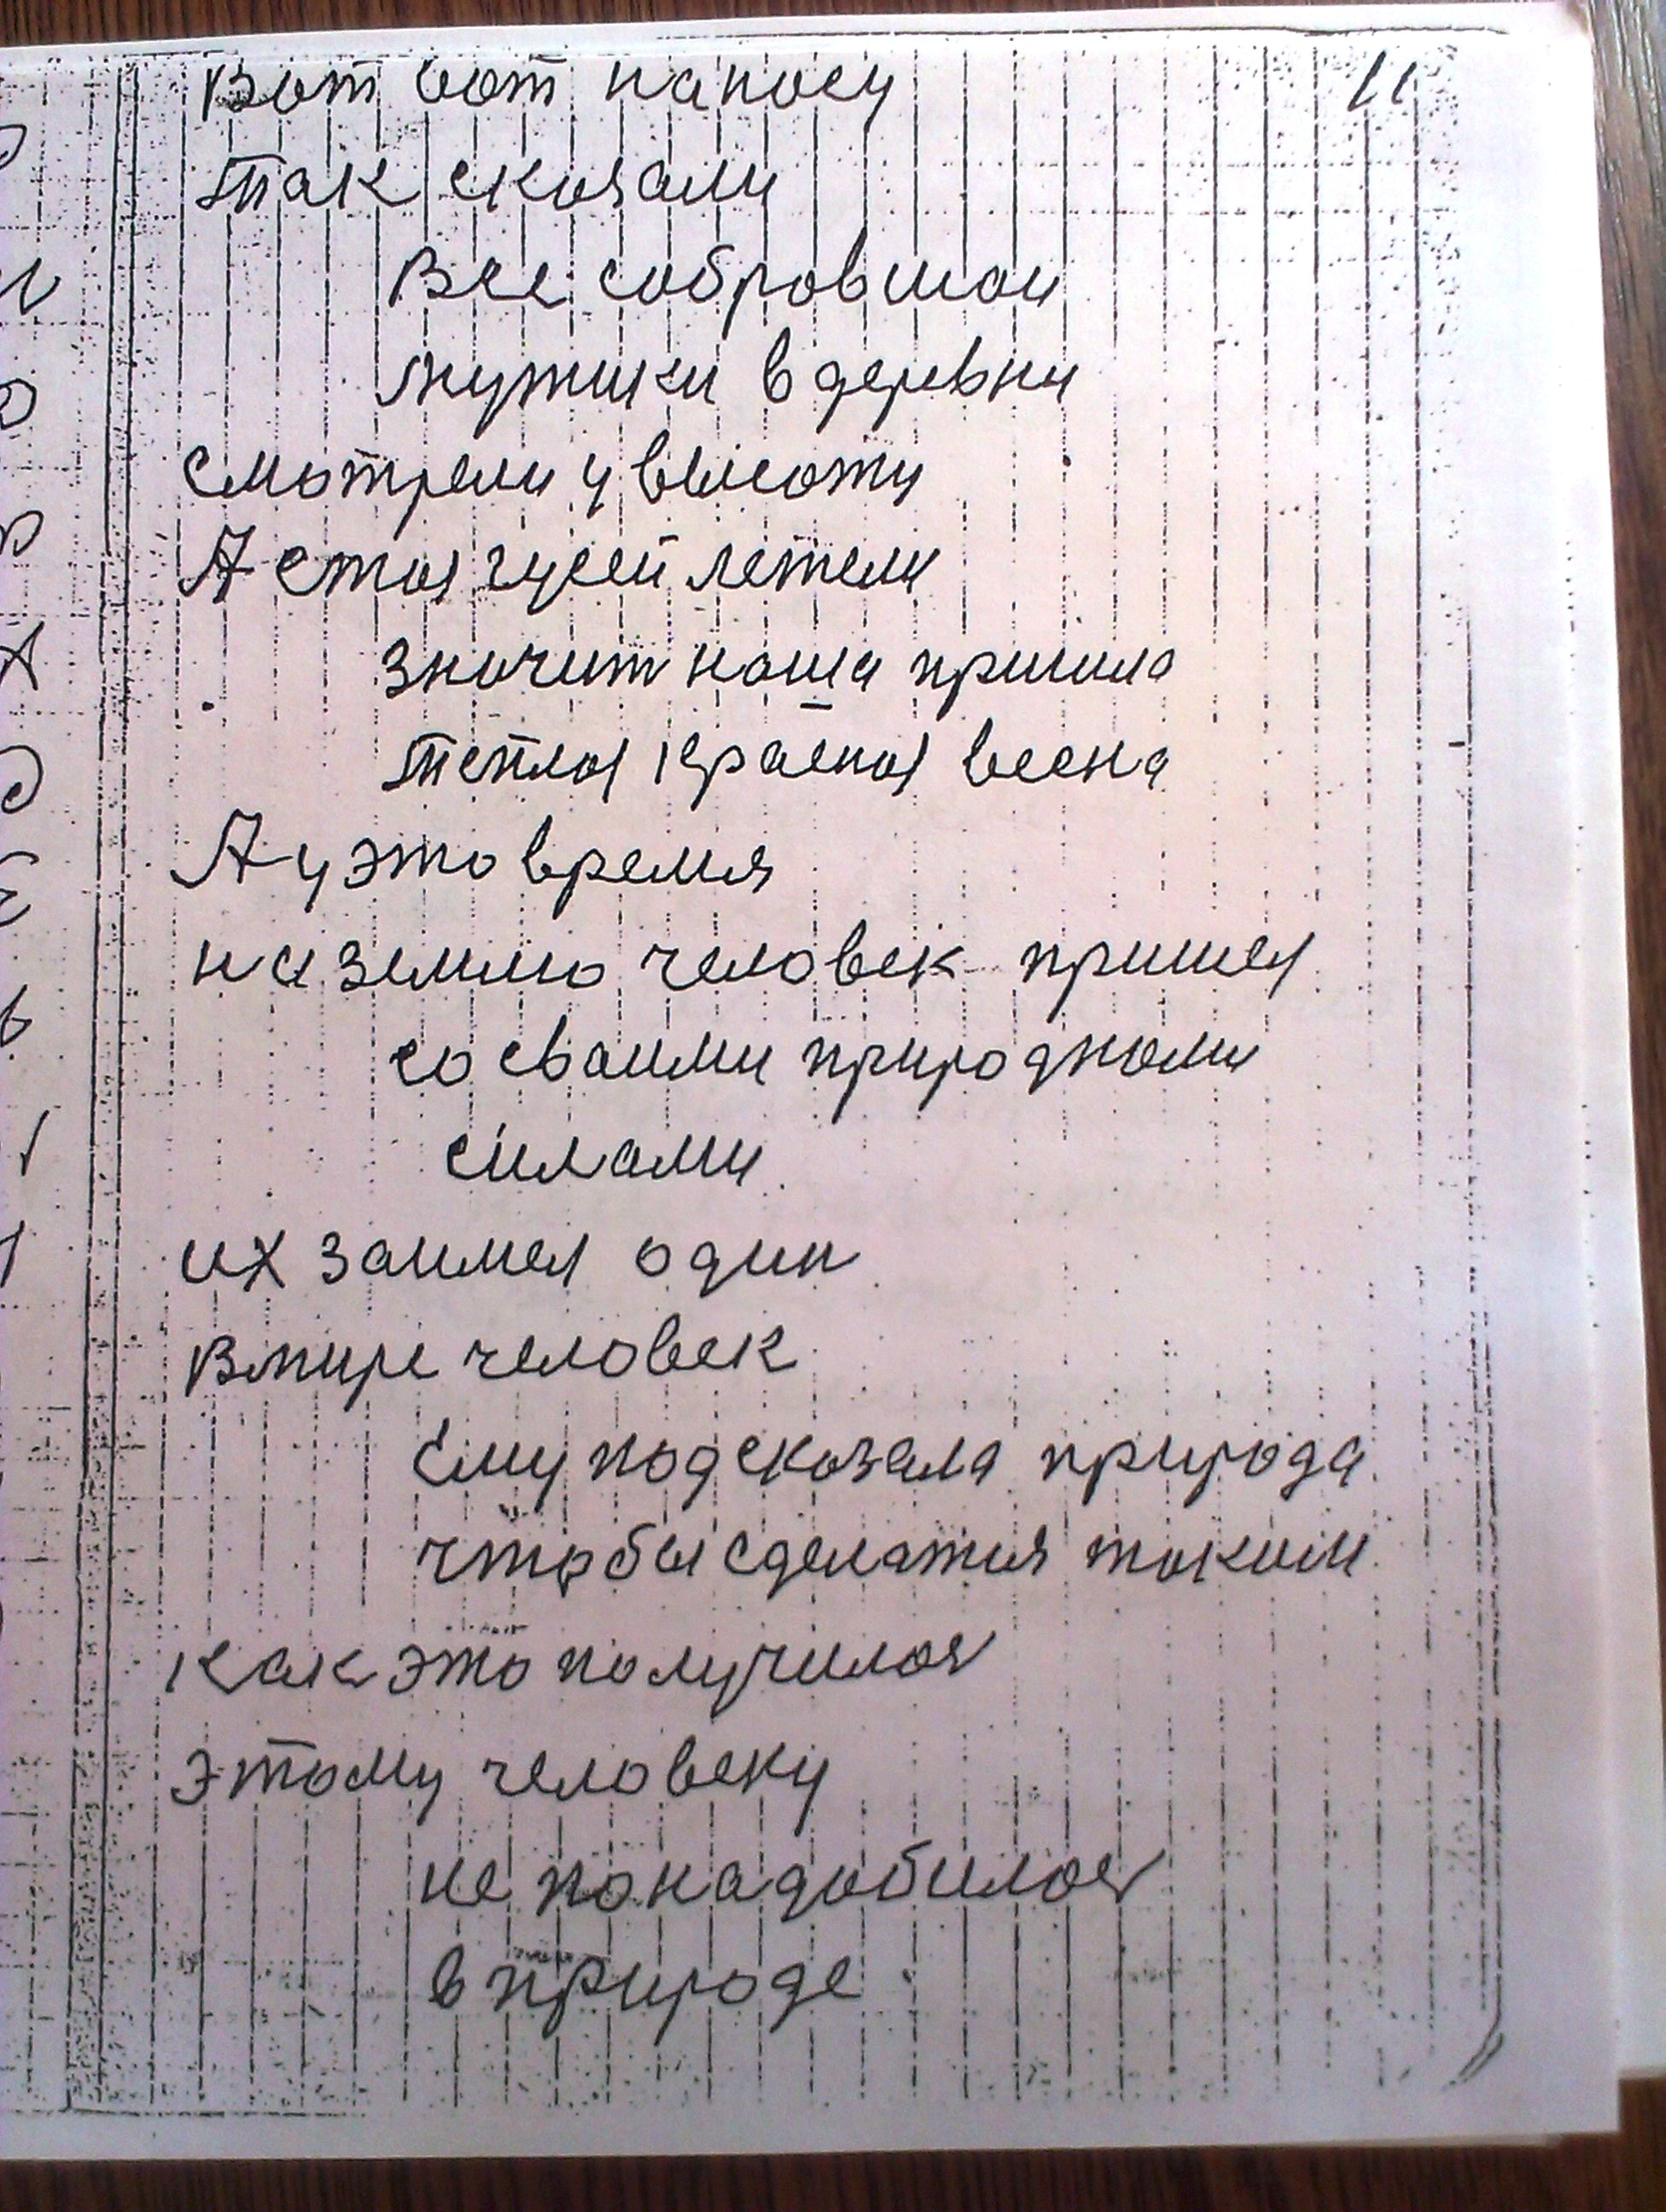 11
Вот вот на носу
так сказали
Все собравшаи
мужики в деревни
смотрели у высоту
А стая гусей летели
значит наша пришла
теплая красная весна
А у это время
на землю человек пришел
со сваими природнами
силами
их заимел один
в мире человек
Ему подсказала природа
чтобы сделатия таким
как это получилоя
этому человеку
не понадобилоя
в природе